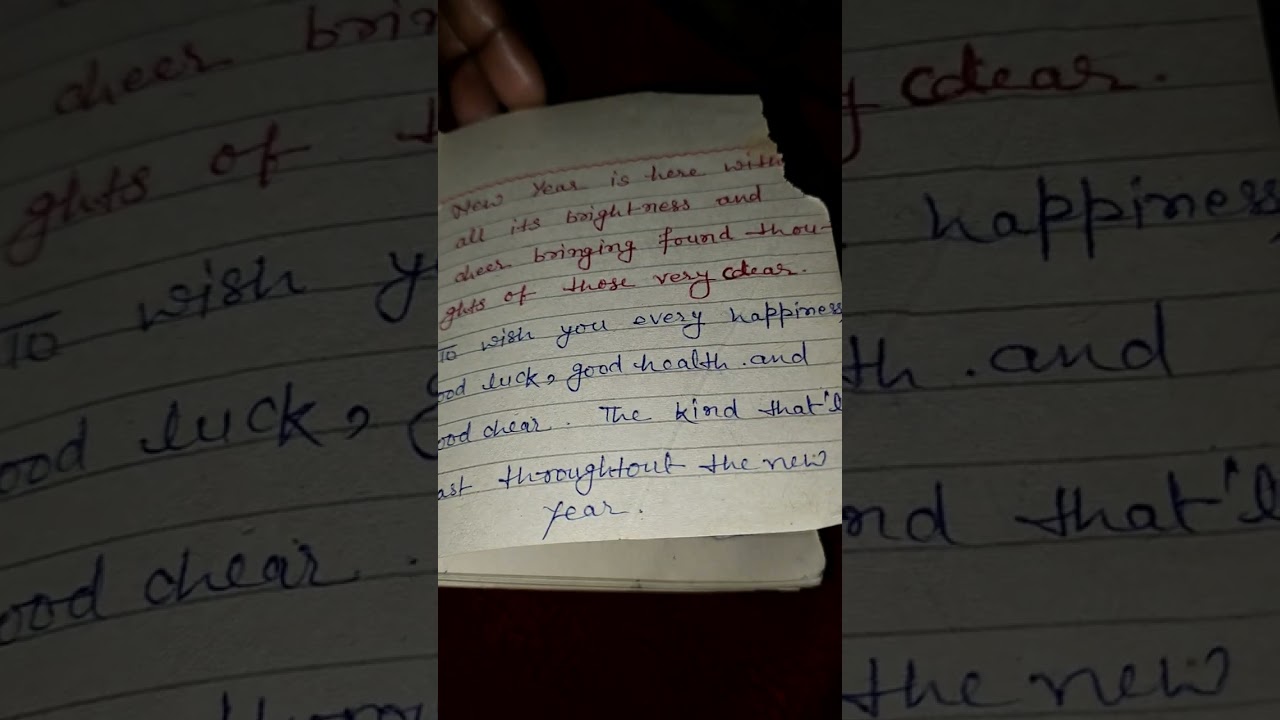 New Year is here with
all its brightness and
cheer bringing found thou-
ghts of those very dear.
To wish you every happiness
ood luck, good health .and
ood chear. The kind that'll
ast throughtout the new
year.